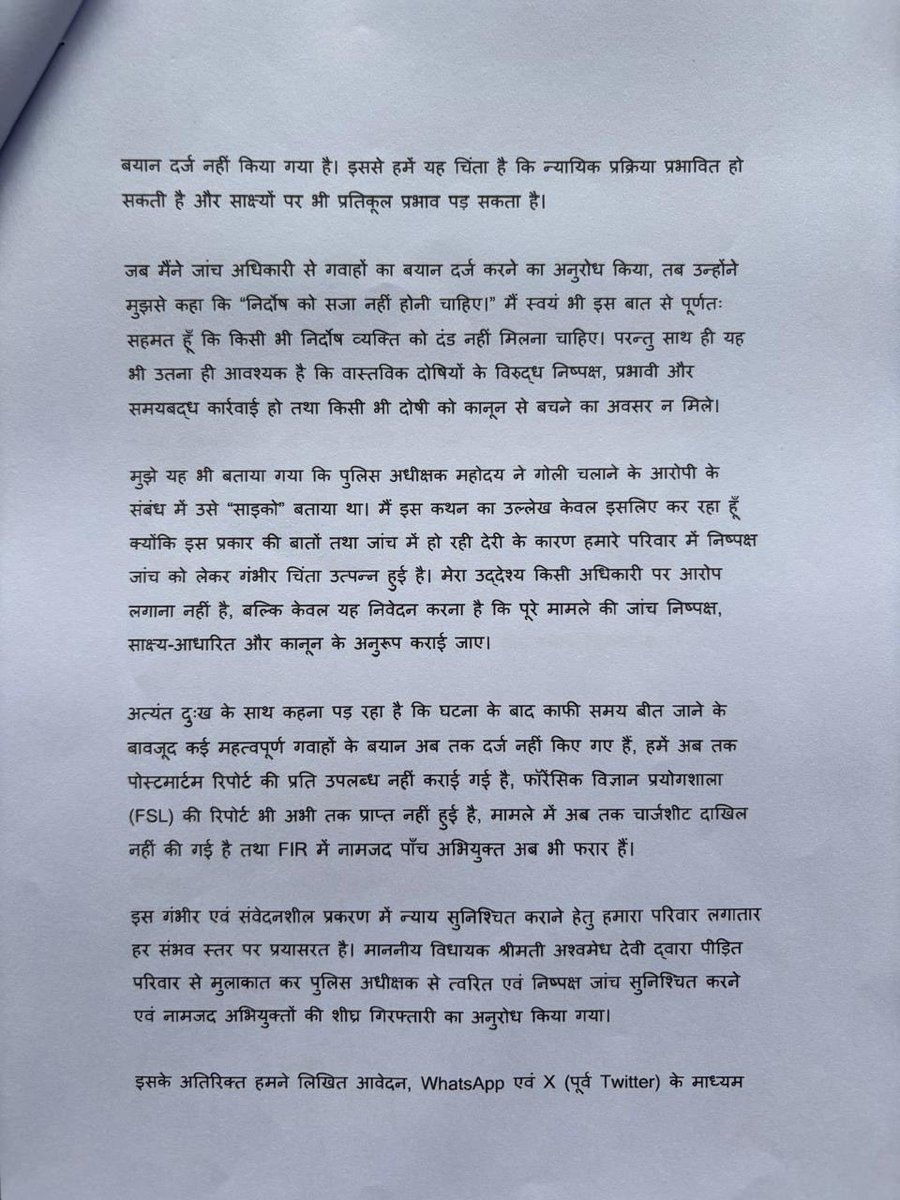 बयान दर्ज नहीं किया गया है। इससे हमें यह चिंता है कि न्यायिक प्रक्रिया प्रभावित हो
सकती है और साक्ष्यों पर भी प्रतिकूल प्रभाव पड़ सकता है।
जब मैंने जांच अधिकारी से गवाहों का बयान दर्ज करने का अनुरोध किया, तब उन्होंने
मुझसे कहा कि “निर्दोष को सजा नहीं होनी चाहिए।” मैं स्वयं भी इस बात से पूर्णतः
सहमत हूँ कि किसी भी निर्दोष व्यक्ति को दंड नहीं मिलना चाहिए। परन्तु साथ ही यह
भी उतना ही आवश्यक है कि वास्तविक दोषियों के विरुद्ध निष्पक्ष, प्रभावी और
समयबद्ध कार्रवाई हो तथा किसी भी दोषी को कानून से बचने का अवसर न मिले।
मुझे यह भी बताया गया कि पुलिस अधीक्षक महोदय ने गोली चलाने के आरोपी के
संबंध में उसे “साइको” बताया था। मैं इस कथन का उल्लेख केवल इसलिए कर रहा हूँ
क्योंकि इस प्रकार की बातों तथा जांच में हो रही देरी के कारण हमारे परिवार में निष्पक्ष
जांच को लेकर गंभीर चिंता उत्पन्न हुई है। मेरा उद्देश्य किसी अधिकारी पर आरोप
लगाना नहीं है, बल्कि केवल यह निवेदन करना है कि पूरे मामले की जांच निष्पक्ष,
साक्ष्य-आधारित और कानून के अनुरूप कराई जाए।
अत्यंत दुःख के साथ कहना पड़ रहा है कि घटना के बाद काफी समय बीत जाने के
बावजूद कई महत्वपूर्ण गवाहों के बयान अब तक दर्ज नहीं किए गए हैं, हमें अब तक
पोस्टमार्टम रिपोर्ट की प्रति उपलब्ध नहीं कराई गई है, फॉरेंसिक विज्ञान प्रयोगशाला
(FSL) की रिपोर्ट भी अभी तक प्राप्त नहीं हुई है, मामले में अब तक चार्जशीट दाखिल
नहीं की गई है तथा FIR में नामजद पाँच अभियुक्त अब भी फरार हैं।
इस गंभीर एवं संवेदनशील प्रकरण में न्याय सुनिश्चित कराने हेतु हमारा परिवार लगातार
हर संभव स्तर पर प्रयासरत है। माननीय विधायक श्रीमती अश्वमेध देवी द्वारा पीड़ित
परिवार से मुलाकात कर पुलिस अधीक्षक से त्वरित एवं निष्पक्ष जांच सुनिश्चित करने
एवं नामजद अभियुक्तों की शीघ्र गिरफ्तारी का अनुरोध किया गया।
इसके अतिरिक्त हमने लिखित आवेदन, WhatsApp एवं X (पूर्व Twitter) के माध्यम